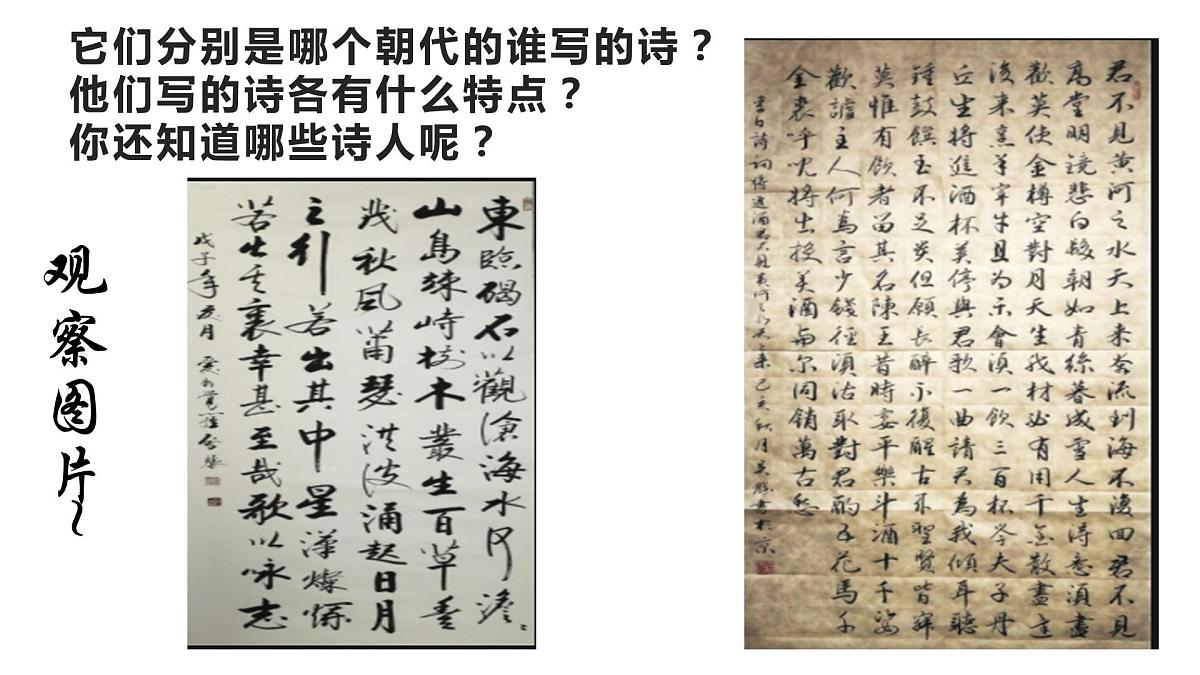 它们分别是哪个朝代的谁写的诗？
他们写的诗各有什么特点？
你还知道哪些诗人呢？
观察图片~
東臨碣石以觀滄海水何澹々
山島竦峙樹木叢生百草豐
茂秋風蕭瑟洪波涌起日月
之行若出其中星漢燦爛
若出其裏幸甚至哉歌以咏志
戊子年月
君不見黃河之水天上來奔流到海不復回君不見
高堂明鏡悲白髮朝如青絲暮成雪人生得意須盡
歡莫使金樽空對月天生我材必有用千金散盡還
復來烹羊宰牛且為樂會須一飲三百杯岑夫子丹
丘生將進酒杯莫停與君歌一曲請君為我傾耳聽
鍾鼓饌玉不足貴但願長醉不復醒古來聖賢皆寂
寞惟有飲者留其名陳王昔時宴平樂斗酒十千恣
歡謔主人何為言少錢徑須沽取對君酌五花馬千
金裘呼兒將出換美酒與爾同銷萬古愁
李白詩詞將進酒君不見黃河之水天上來己亥秋月書於京